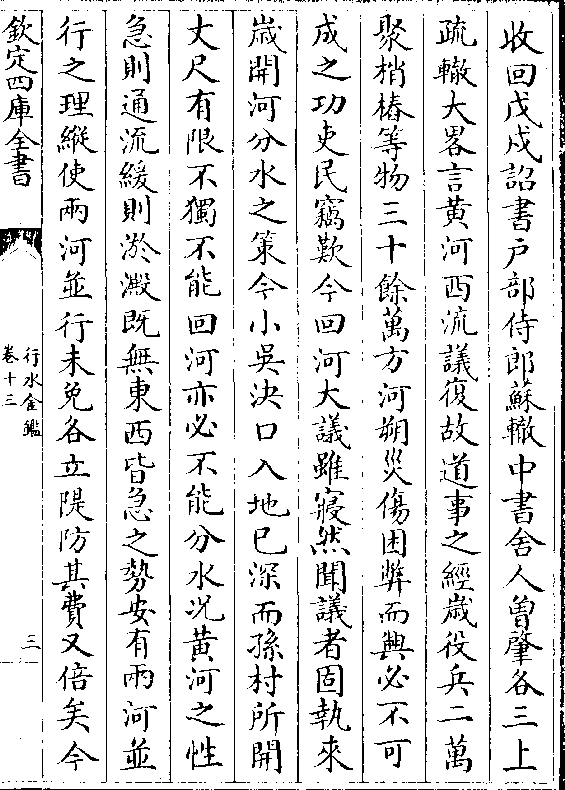 收回戊戌詔書戶部侍郎蘇轍中書舍人曾肇各三上
疏轍大畧言黃河西流議復故道事之經歲役兵二萬
聚梢樁等物三十餘萬方河朔災傷困弊而興必不可
成之功吏民竊歎今回河大議雖寢然聞議者固執來
歲開河分水之策今小吳決口入地已深而孫村所開
丈尺有限不獨不能回河亦必不能分水况黃河之性
急則通流緩則淤澱既無東西皆急之勢安有兩河並
行之理縱使兩河並行未免各立隄防其費又倍矣今
欽定四庫全書
行水金鑑
卷十三
三